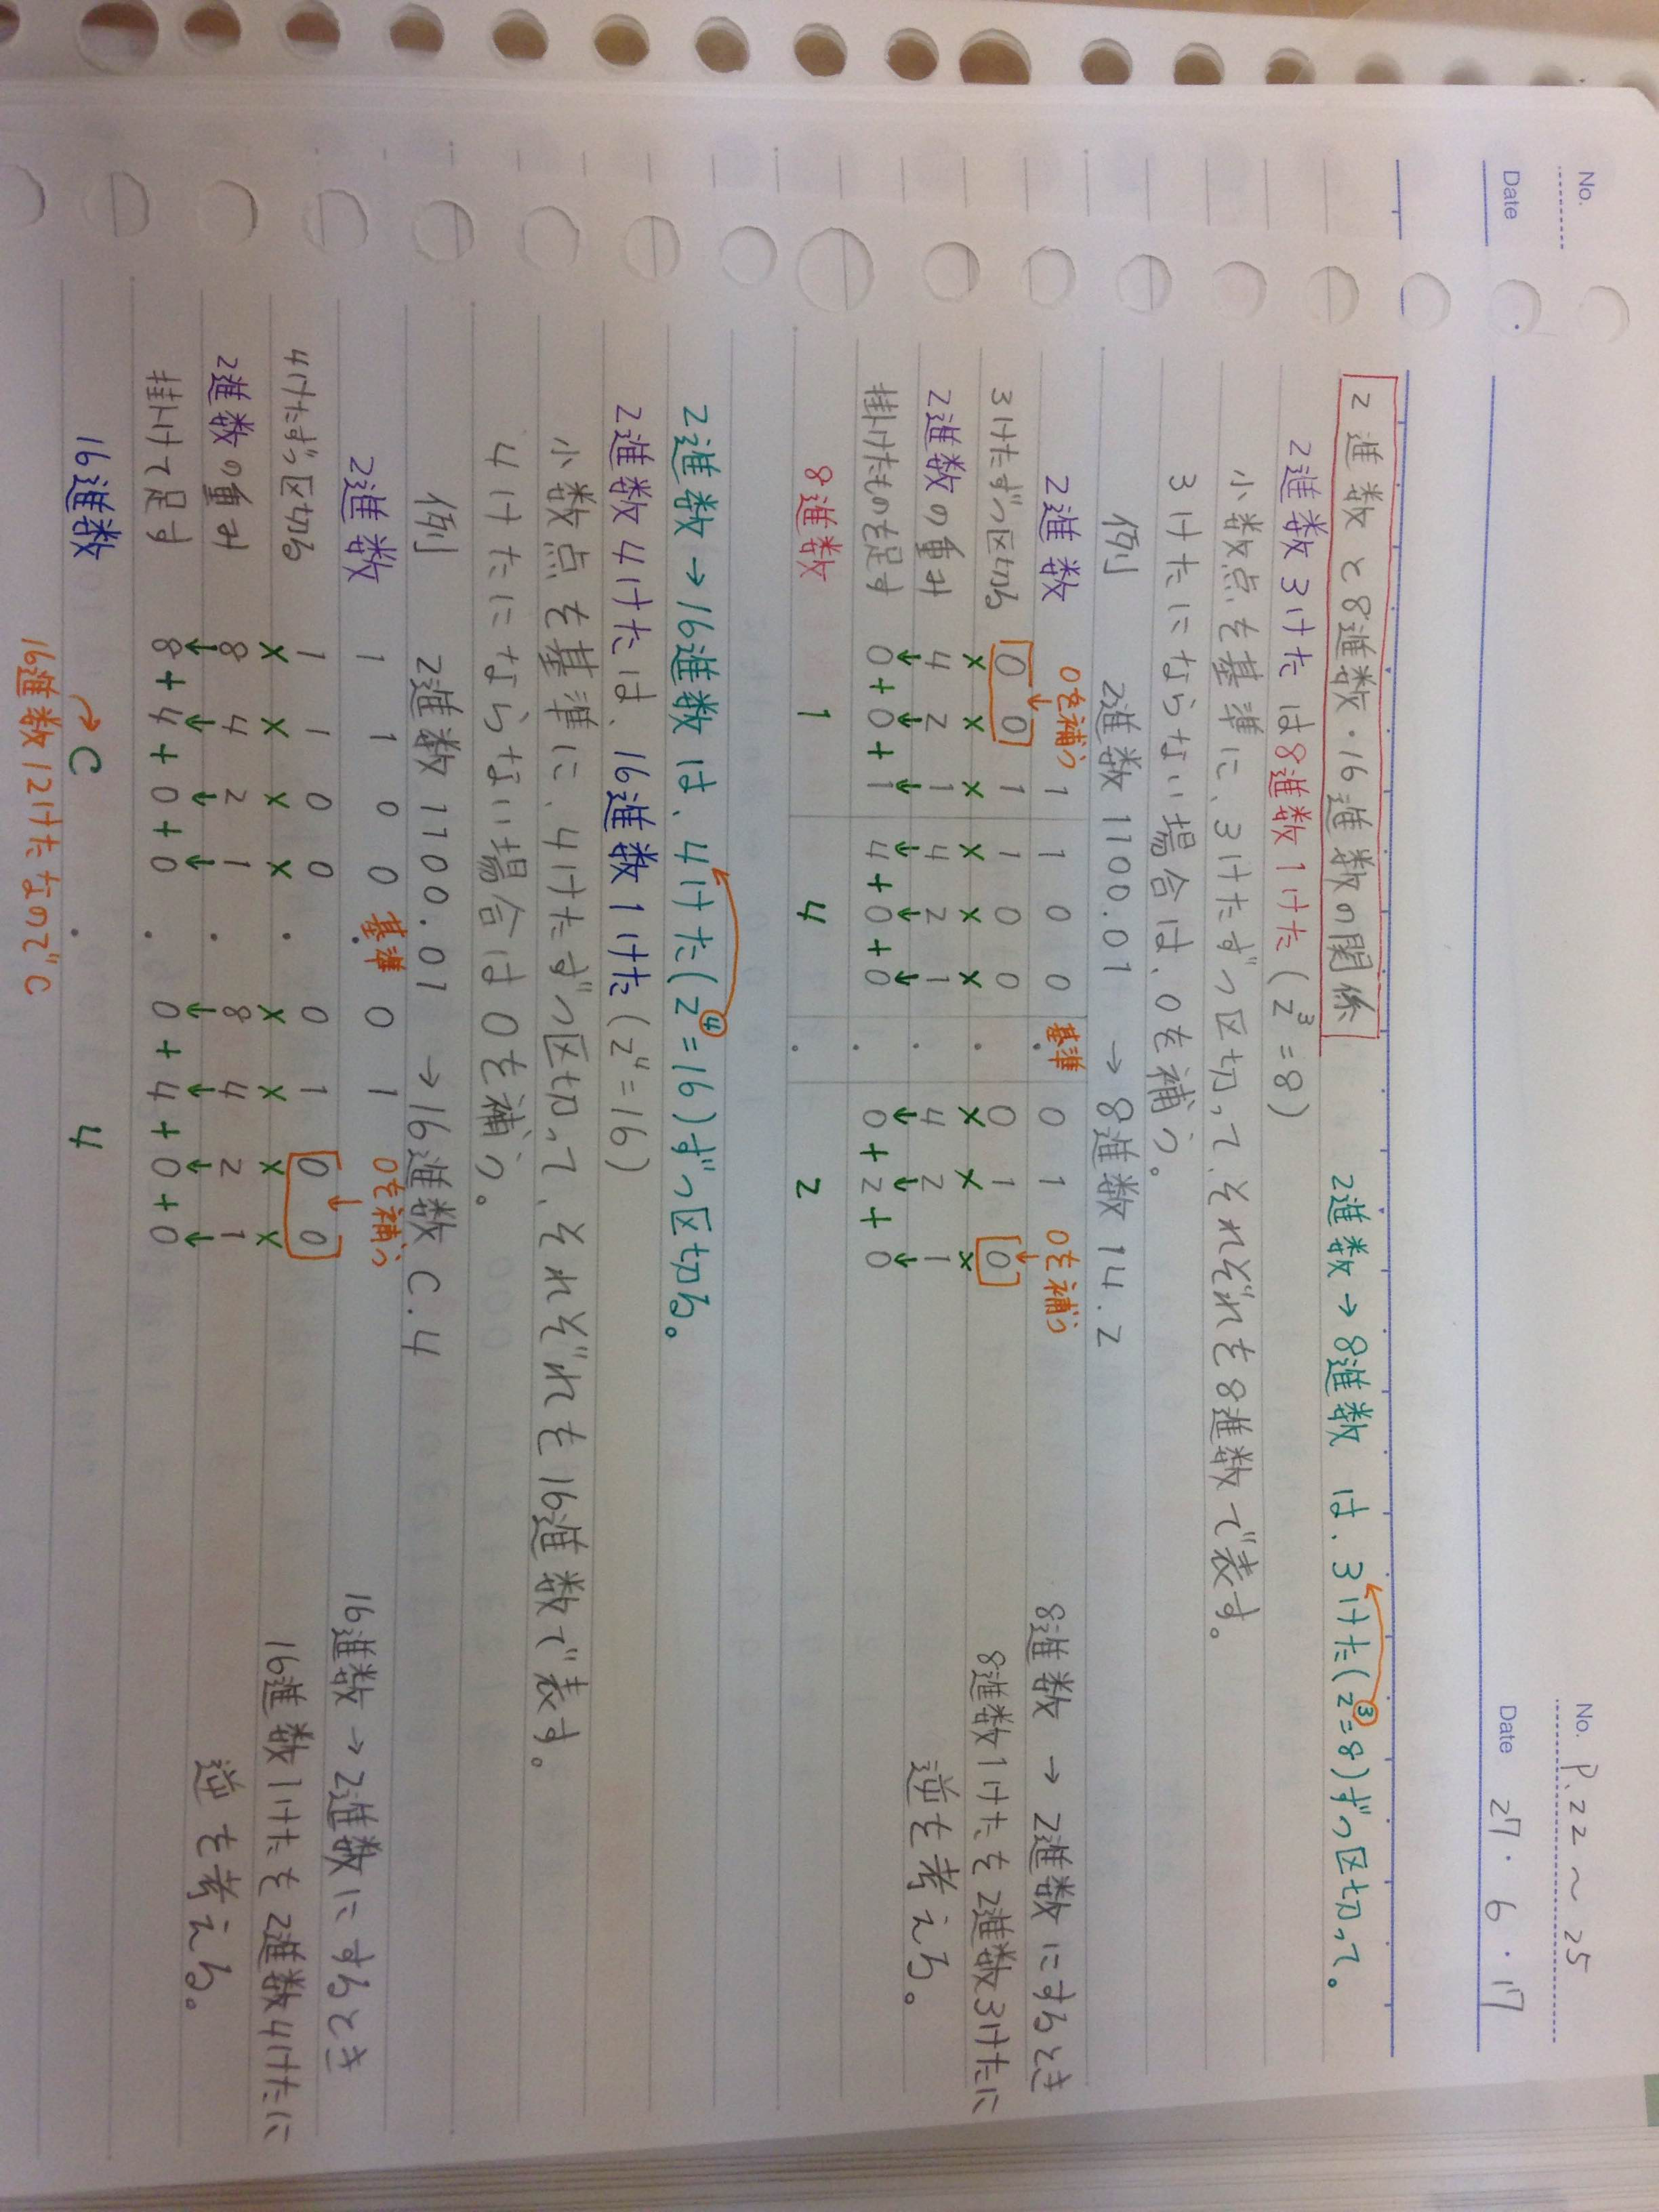 No.
Date
No. P.22〜25
Date 27・6・17
2進数と8進数・16進数の関係
2進数→8進数 は、3けた(2³=8)ずつ区切って。
2進数3けたは8進数1けた(2³=8)
小数点を基準に、3けたずつ区切って、それぞれを8進数で表す。
3けたにならない場合は、0を補う。
例 2進数1100.01 → 8進数 14.2
2進数 0を補う 1 1 0 0 基準 . 0 1 0を補う
3けたずつ区切る 0 0 1 1 0 0 . 0 1 0
× × × × × × × × ×
2進数の重み 4 2 1 4 2 1 . 4 2 1
↓ ↓ ↓ ↓ ↓ ↓ ↓ ↓ ↓
掛けたものを足す 0+0+1 4+0+0 . 0+2+0
8進数 1 4 . 2
8進数 → 2進数にするとき
8進数1けたを2進数3けたに
逆を考える。
2進数→16進数は、4けた(2⁴=16)ずつ区切る。
2進数4けたは、16進数1けた(2⁴=16)
小数点を基準に、4けたずつ区切って、それぞれを16進数で表す。
4けたにならない場合は0を補う。
例 2進数1100.01 →16進数 C.4
2進数 1 1 0 0 基準 . 0 1 0を補う
4けたずつ区切る 1 1 0 0 . 0 1 0 0
× × × × × × × ×
2進数の重み 8 4 2 1 . 8 4 2 1
↓ ↓ ↓ ↓ ↓ ↓ ↓ ↓
掛けて足す 8+4+0+0 . 0+4+0+0
16進数 →C . 4
16進数12けたなのでC
16進数→2進数にするとき
16進数1けたを2進数4けたに
逆を考える。